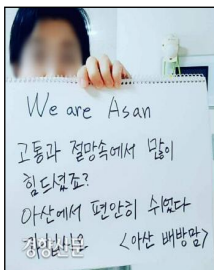 We are Asan
고통과 절망속에서 많이
힘드셨죠?
아산에서 편안히 쉬었다
<아산 배방맘>
경향신문